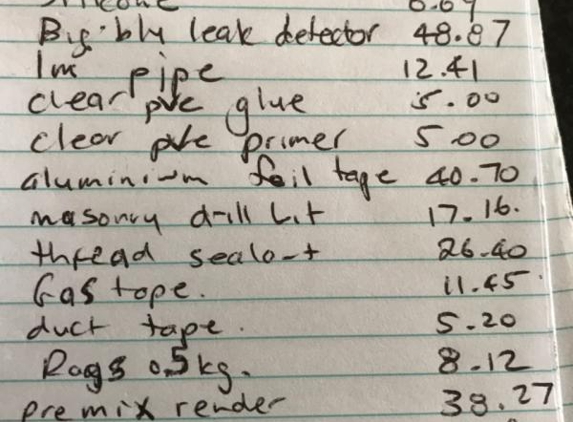 Big bly leak detector 48.87
1m pipe 12.41
clear pvc glue 5.00
clear pvc primer 5.00
aluminium foil tape 40.70
masonry drill bit 17.16.
thread sealant 26.40
Gas tape. 11.45
duct tape. 5.20
Rags 0.5kg. 8.12
premix render 38.27